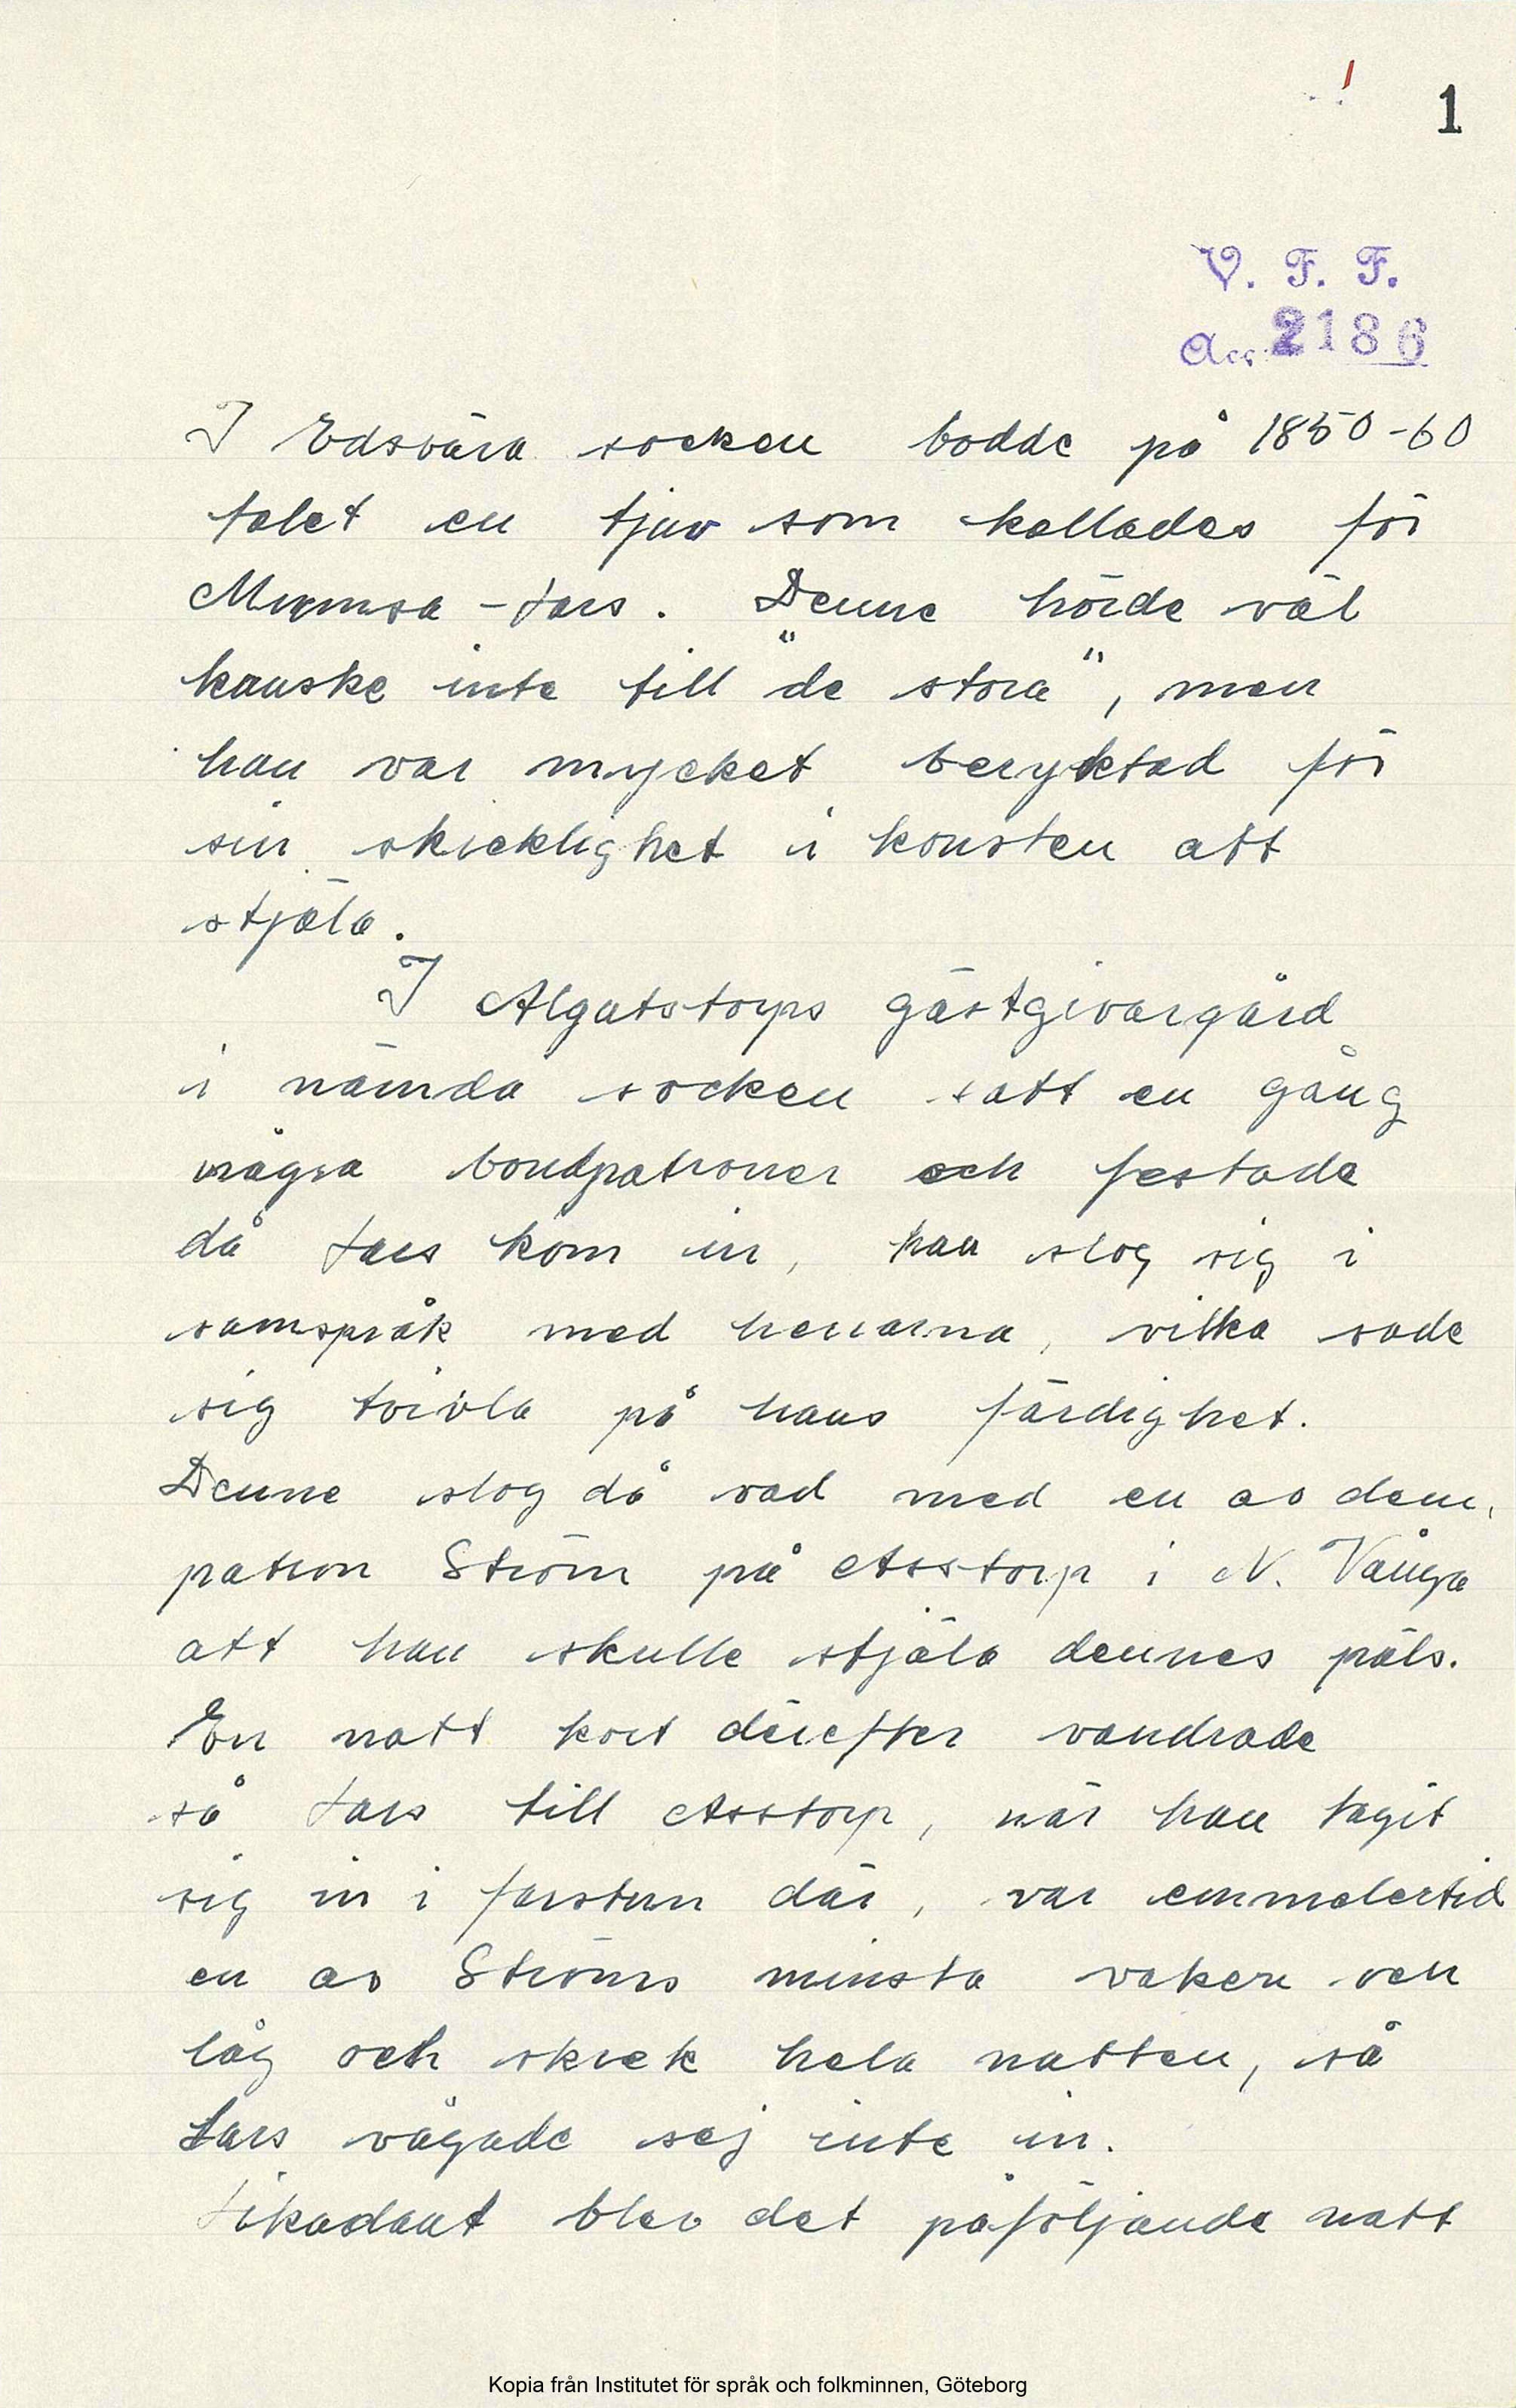 1
V. F. F.
Acc. 2186
I Edsvära socken bodde på 1850-60
talet en tjuv som kallades för
Mumsa-Lars. Denne hörde väl
kanske inte till "de stora", men
han var mycket beryktad för
sin skicklighet i konsten att
stjäla.
I Algutstorps gästgivargård
i nämda socken satt en gång
några bondpatroner och festade
då Lars kom in, han slog sig i
samspråk med herrarna, vilka sade
sig tvivla på hans färdighet.
Denne slog då vad med en av dem,
patron Ström på Asstorp i N. Vånga
att han skulle stjäla dennes päls.
En natt kort därefter vandrade
så Lars till Asstorp, när han tagit
sig in i farstun där, var emmelertid
en av Ströms minsta vaken och
låg och skrek hela natten, så
Lars vågade sej inte in.
Likadant blev det påföljande natt
Kopia från Institutet för språk och folkminnen, Göteborg